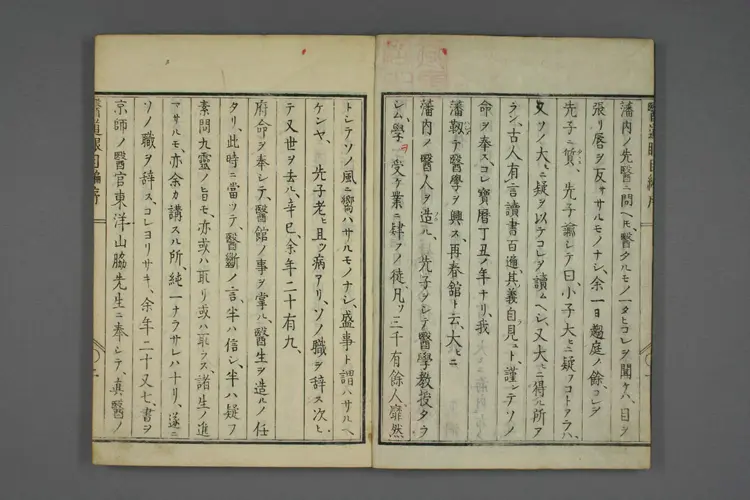 藩内ノ先醫ニ問ヘ𪜈、醫タルモノ一タヒコレヲ聞ケハ、目ヲ
張リ唇ヲ反サヽルモノナシ、余一日趨庭ノ餘、コレヲ
先子ニ質ス、先子諭シテ曰、小子大ニ疑フコトアラハ、
又ソノ大ニ疑ヲ以テコレヲ讀ムヘシ、又大ニ得ル所ア
ラン、古人有言讀書百遍、其義自見ハルト、謹テソノ
命ヲ奉ス、コレ寶曆丁丑ノ年ナリ、我
藩 テ醫學ヲ興ス、再春館ト云、大ニ
藩内ノ醫人ヲ造ル、先子ヲシテ醫學教授タラ
シム、學ヲ受ケ業ニ肄フノ徒、凡ソ三千有餘人、靡然
トシテソノ風ニ嚮ハサルモノナシ、盛事ト謂ハサルヘ
ケンヤ、先子老ヒ且ツ病アリ、ソノ職ヲ辞ス、次ヒ
テ又世ヲ去ル、辛巳、余年二十有九、
府命ヲ奉シテ、醫館ノ事ヲ掌ル、醫生ヲ造ルノ任
タリ、此時ニ當ツテ、醫斷ノ言、半ハ信シ、半ハ疑フ
素問九靈ノ旨モ、亦或ハ取リ或ハ取ラス、諸生ノ進
マサルモ、亦余カ講スル所、純一ナラサレハナリ、遂ニ
ソノ職ヲ辞ス、コレヨリサキ、余年二十又七、書ヲ
京師ノ醫官東洋山脇先生ニ奉シテ、真醫ノ